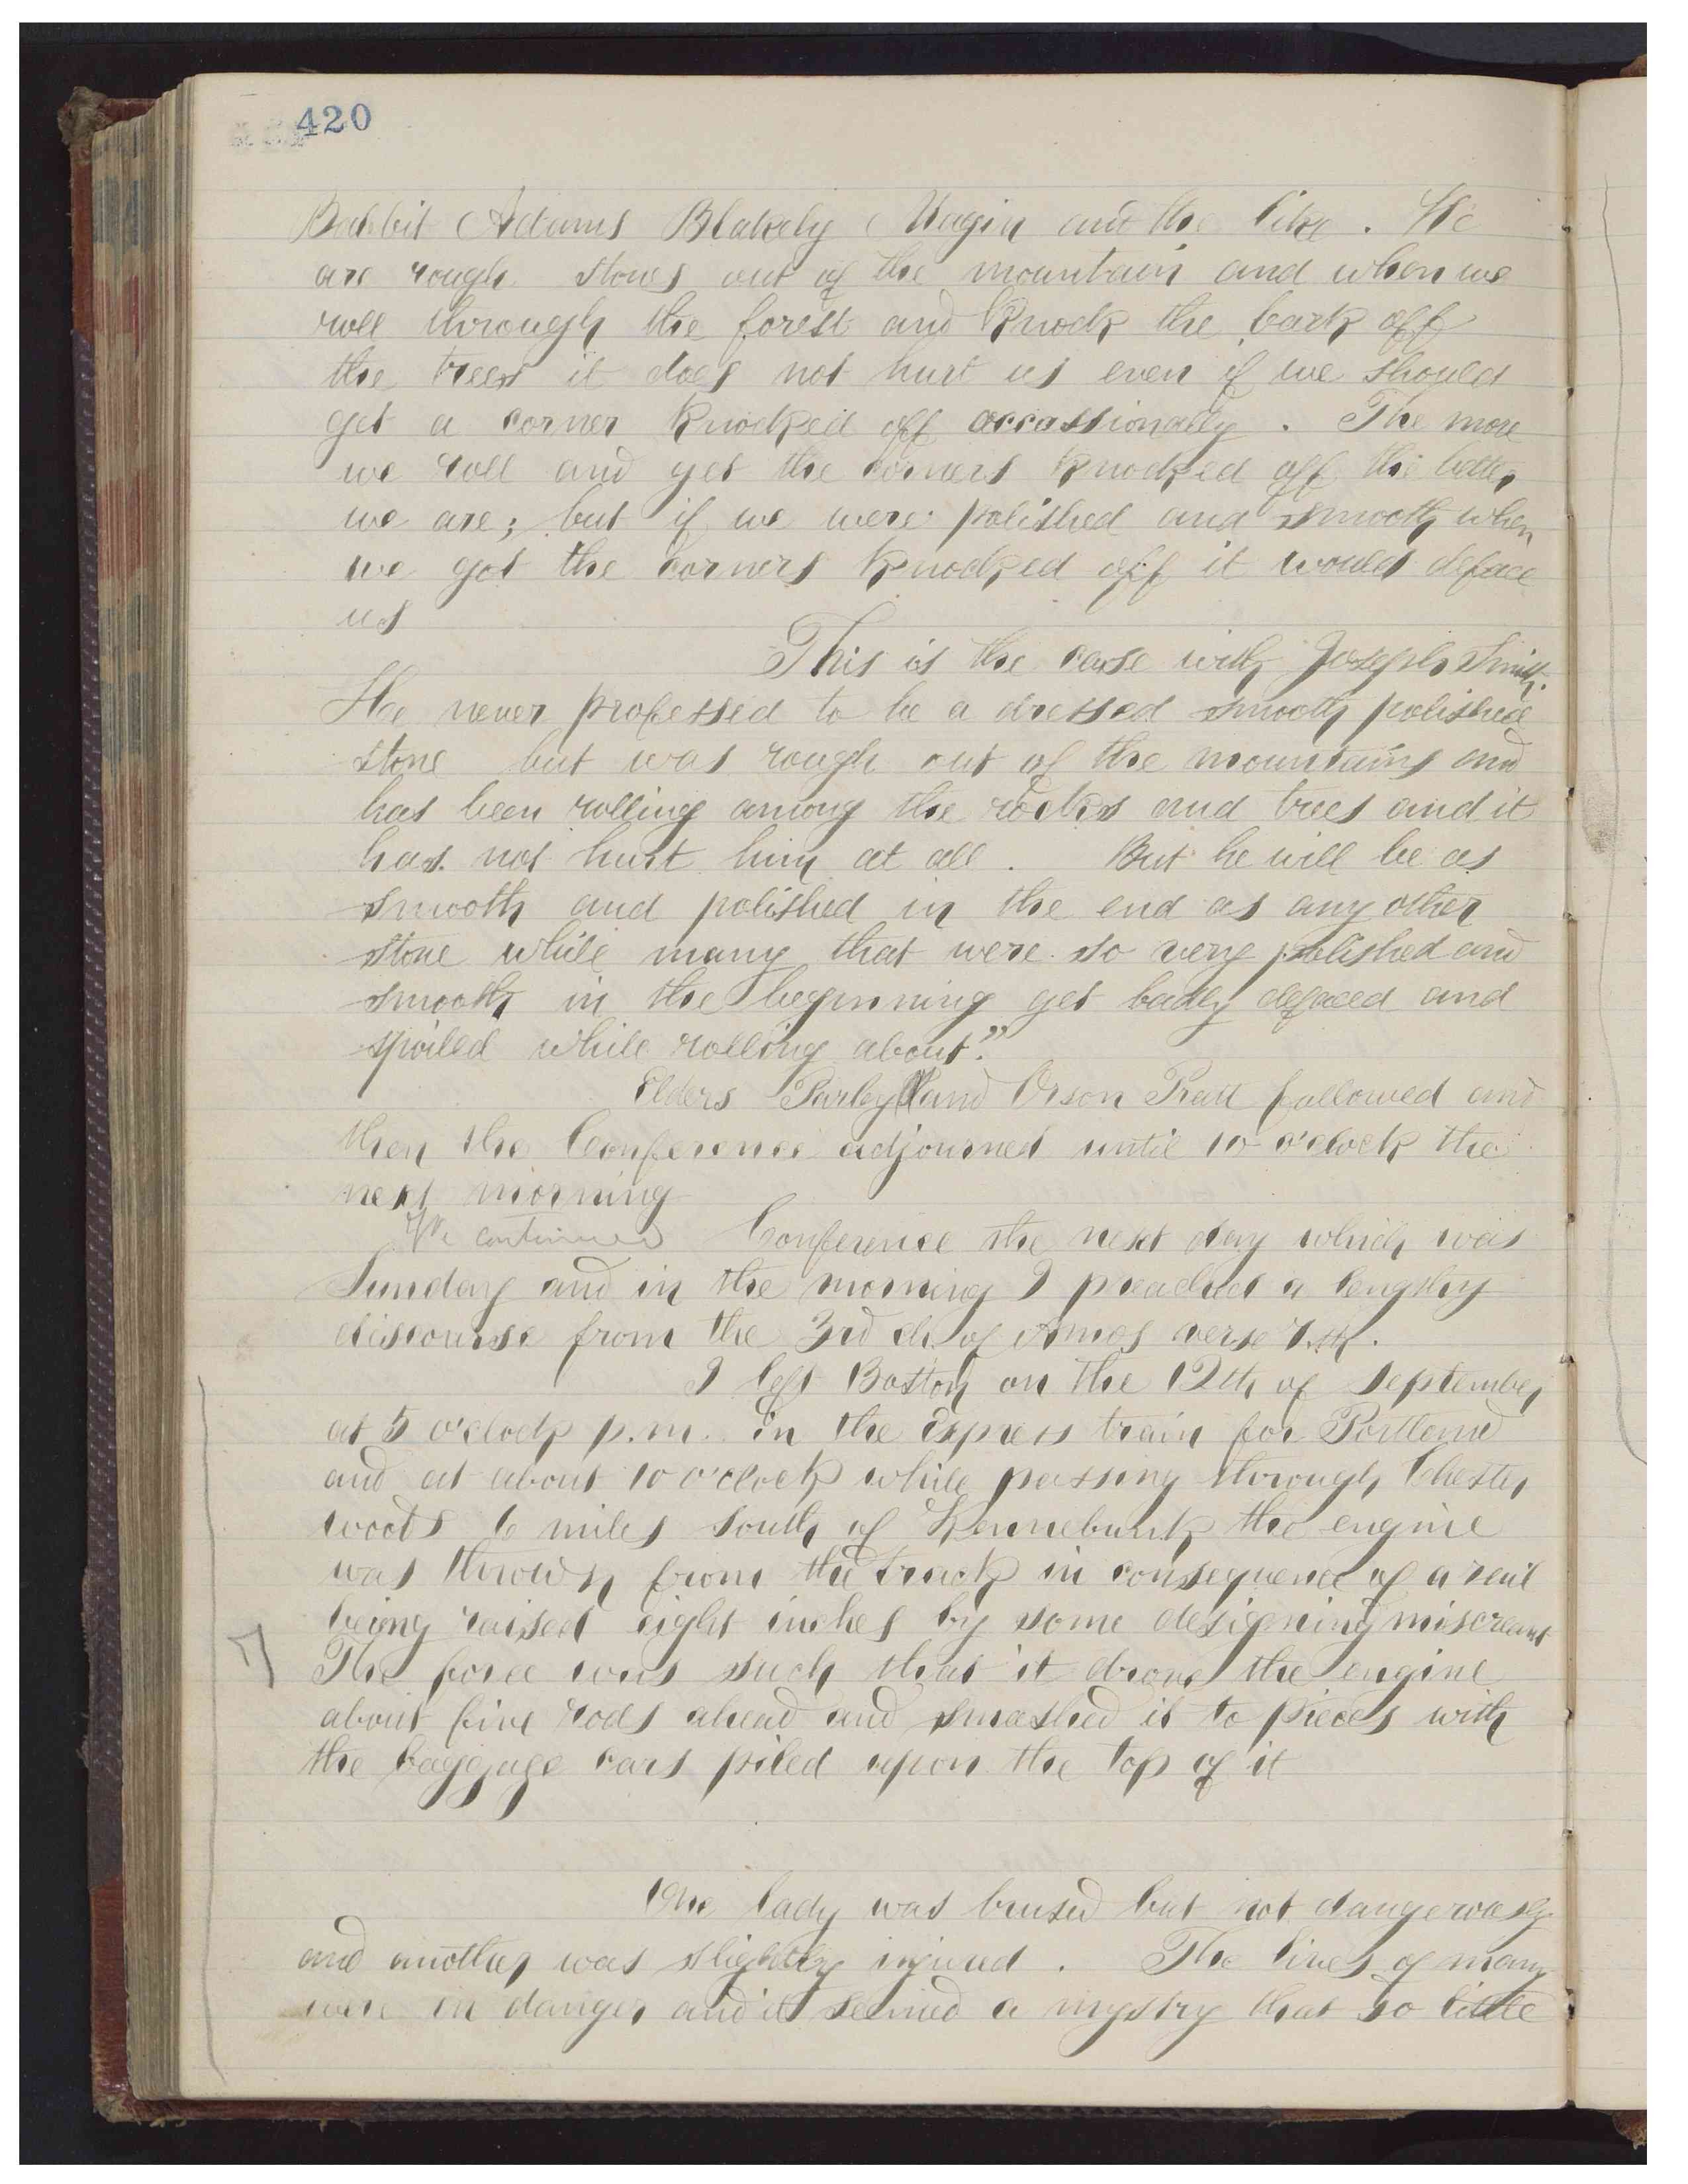 420
Babbit Adams Blakely Magin and the like. We
are rough stones out of the mountain and when we
roll through the forest and knock the bark off
the trees it does not hurt us even if we should
get a corner knocked off occassionally. The more
we roll and get the corners knocked off the better
we are; but if we were polished and smooth when
we got the corners knocked off it would deface
us
This is the case with Joseph Smith.
He never professed to be a dressed smooth polished
stone but was rough out of the mountains and
has been rolling among the rocks and trees and it
has not hurt him at all. But he will be as
smooth and polished in the end as any other
stone while many that were so very polished and
smooth in the beginning get badly defaced and
spoiled while rolling about."
Elders Parley and Orson Pratt followed and
then the Conference adjourned until 10 o'clock the
next morning
We continued Conference the next day which was
Sunday and in the morning I preached a lengthy
discourse from the 3rd ch. of Amos verse 7th.
I left Boston on the 12th of September
at 5 o'clock p.m. in the express train for Portland
and at about 10 o'clock while passing through Chester
woods 6 miles south of Kennebunk the engine
was thrown from the track in consequence of a rail
being raised eight inches by some designing miscreant
The force was such that it drove the engine
about five rods ahead and smashed it to pieces with
the baggage cars piled upon the top of it
One lady was brused but not dangerously
and another was slightly injured. The lives of many
were in danger and it seemed a mystry that so little